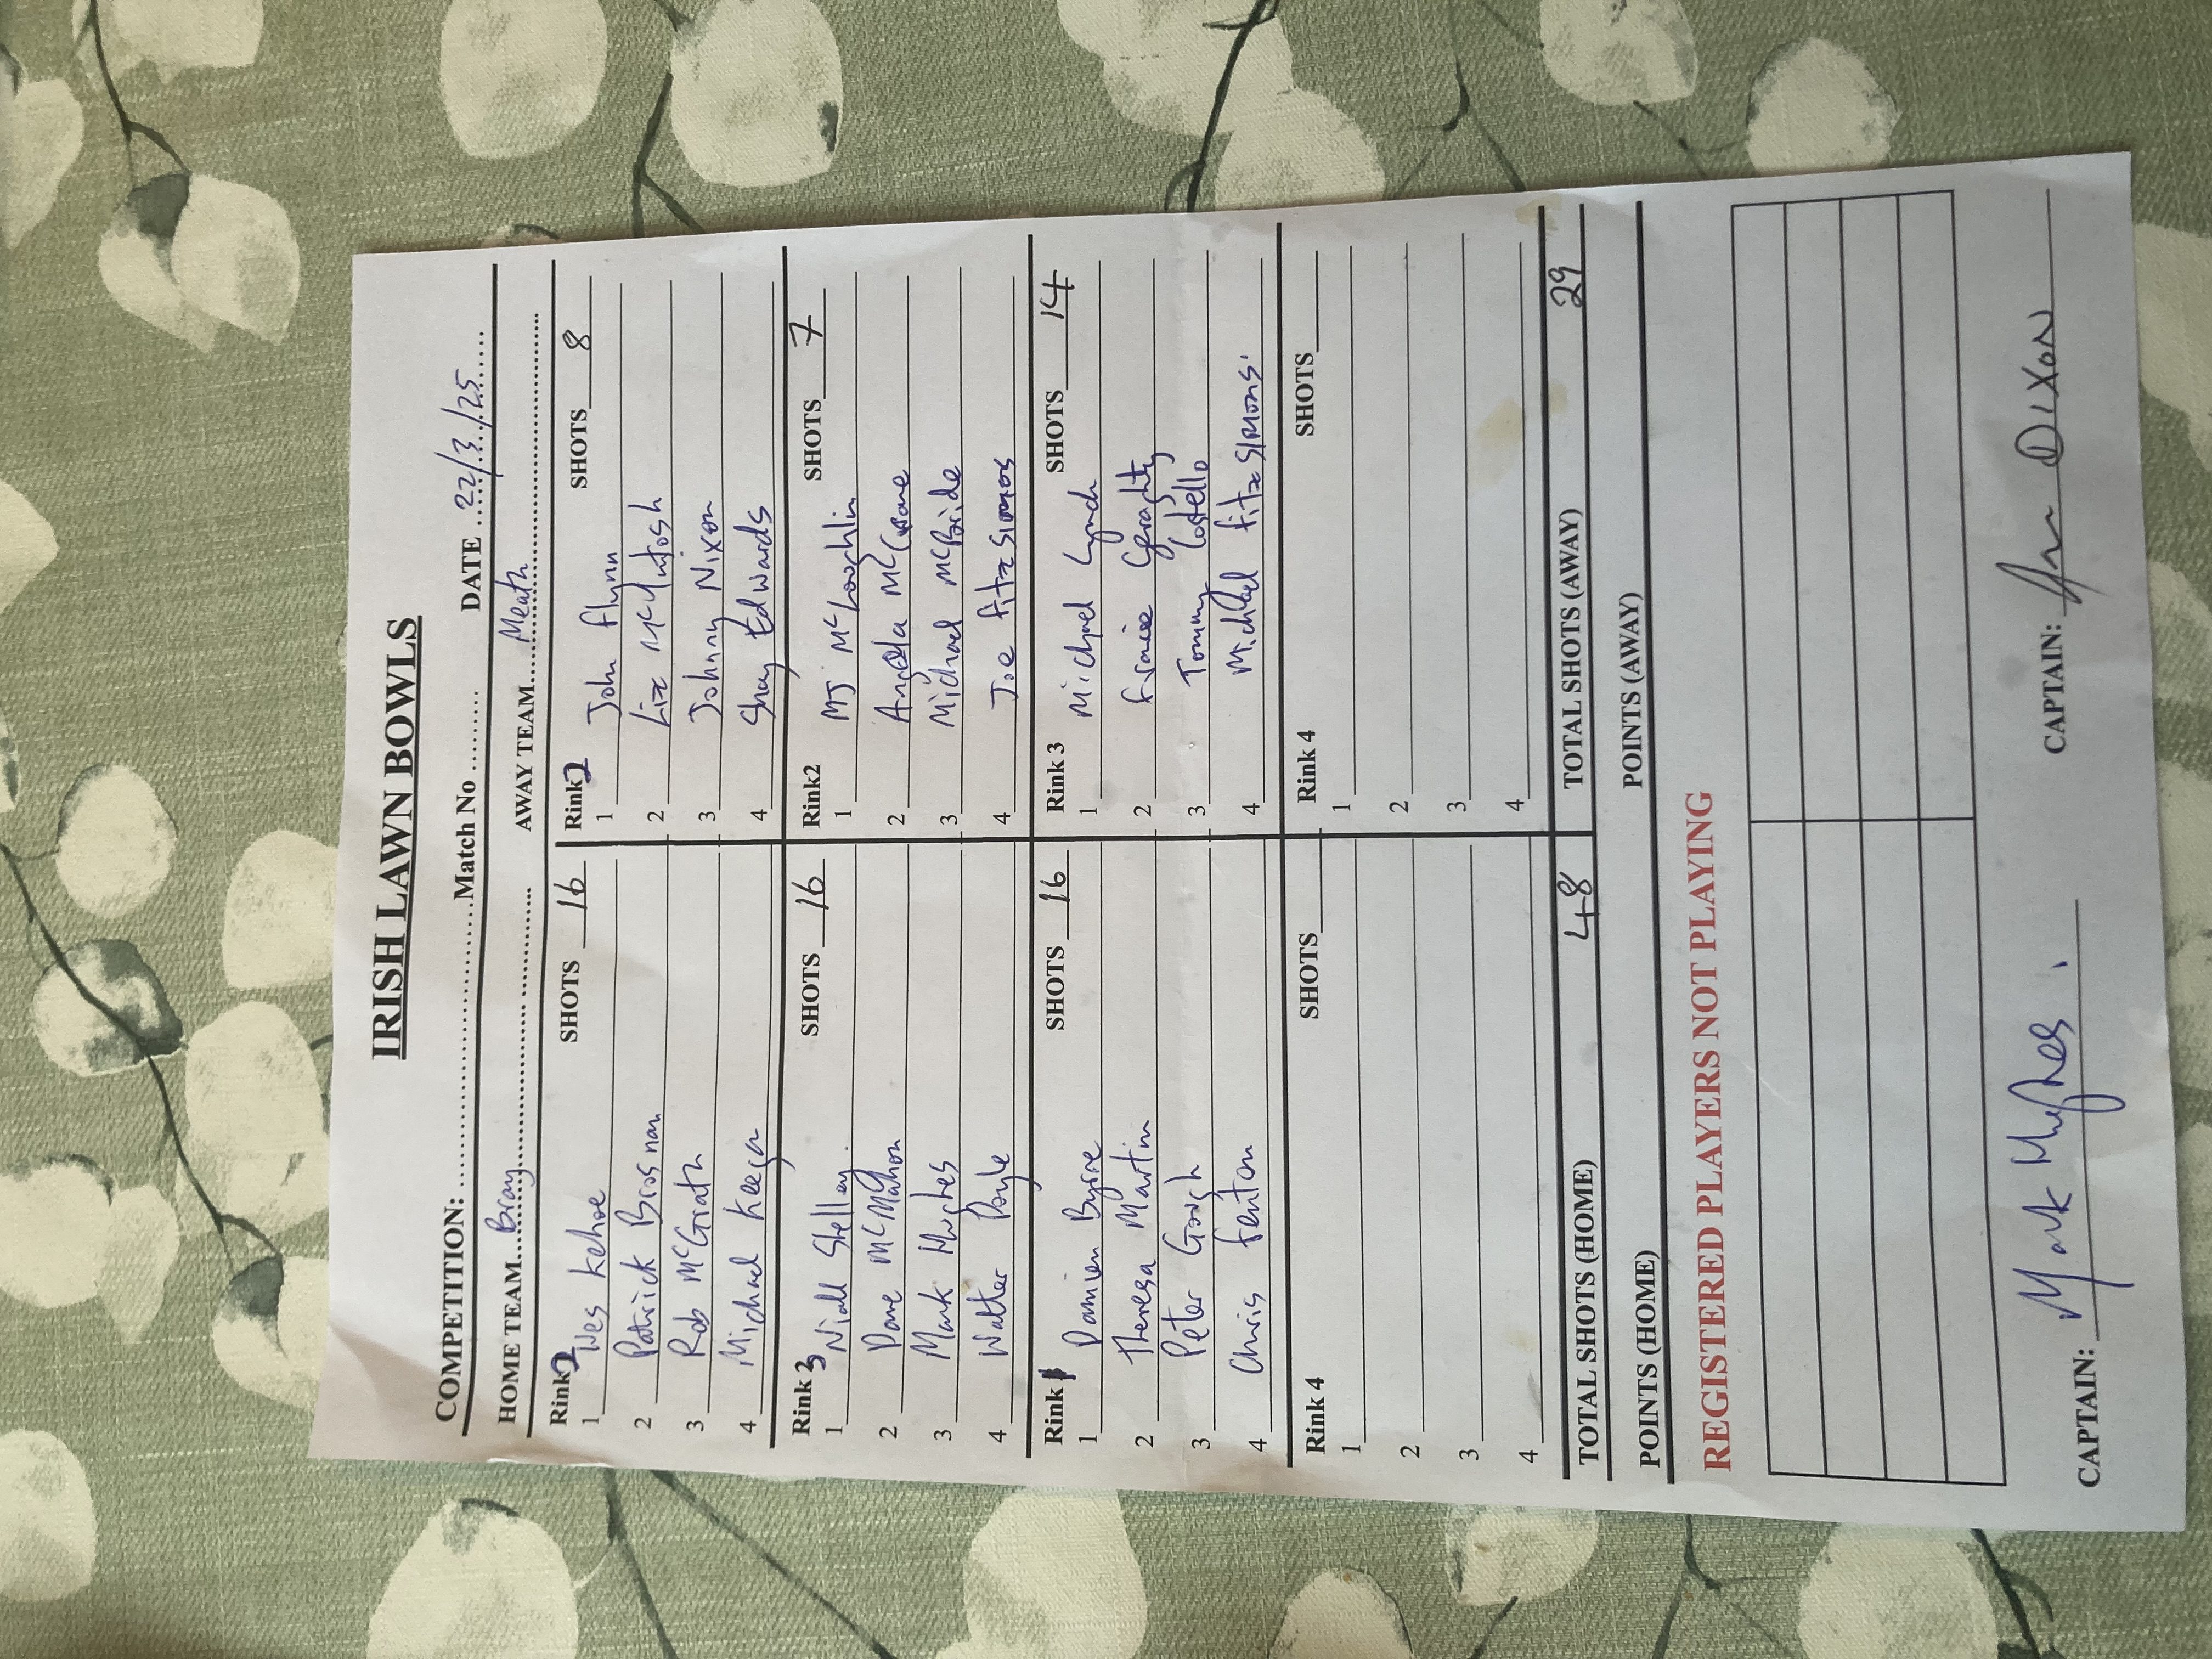 IRISH LAWN BOWLS
COMPETITION: ........................................Match No ......... DATE ..22/3/25......
HOME TEAM...Bray........................... AWAY TEAM......Meath..............................
Rink 2 SHOTS 16
1 Wes Kehoe
2 Patrick Brosnan
3 Rob McGrath
4 Michael Keegan
Rink 2 SHOTS 8
1 John Flynn
2 Liz McIntosh
3 Johnny Nixon
4 Shay Edwards
Rink 3 SHOTS 16
1 Niall Shelley.
2 Dave McMahon
3 Mark Hughes
4 Walter Doyle
Rink2 SHOTS 7
1 MJ McLoughlin
2 Angela McCabe
3 Michael McBride
4 Joe Fitzsimons
Rink 1 SHOTS 16
1 Damien Byrne
2 Theresa Martin
3 Peter Gough
4 Chris Fenton
Rink 3 SHOTS 14
1 Michael Lynch
2 Geraghty
3 Tommy Costello
4 Michael FitzSIMONS.
Rink 4 SHOTS
1
2
3
4
Rink 4 SHOTS
1
2
3
4
TOTAL SHOTS (HOME) 48 TOTAL SHOTS (AWAY) 29
POINTS (HOME) POINTS (AWAY)
REGISTERED PLAYERS NOT PLAYING
CAPTAIN: Mark Hughes. CAPTAIN: DIXON